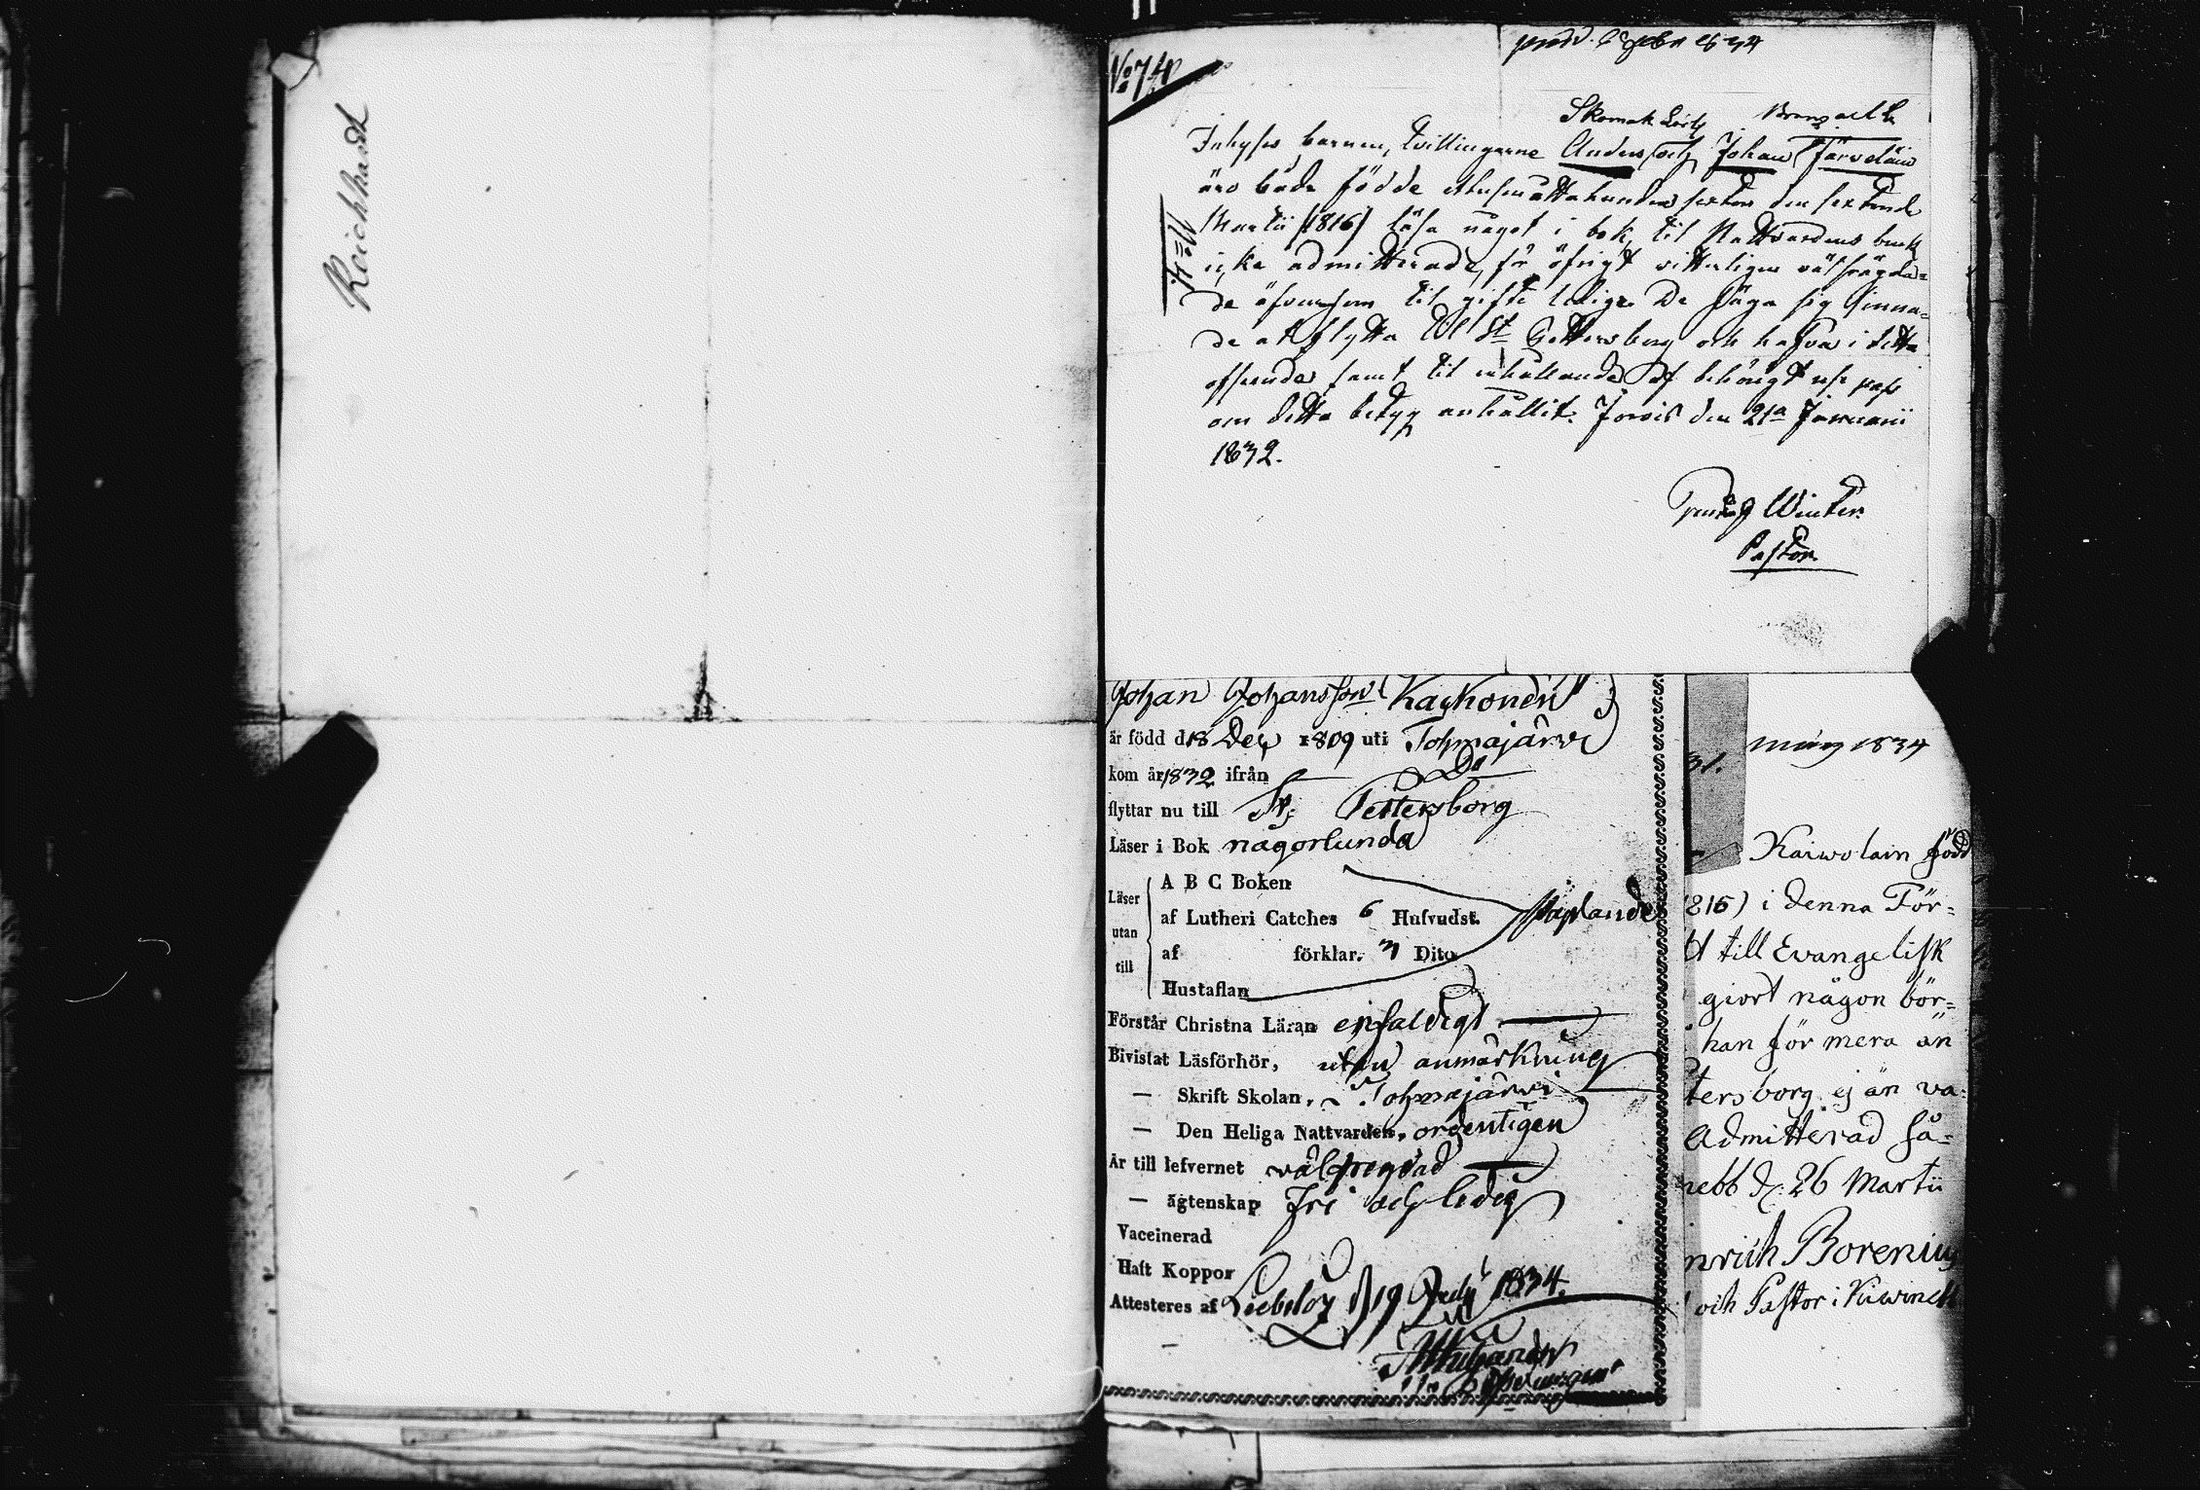 Reichhardt
No 74
Skomak Lärl
Inhyses barnen, tvillingarne Anders och Johan Järveläin
äro både födde ettusenåttahundrasexton den sextonde
Martii (1816) läsa något i bok, til Nattvardens bruk
icke admitterade, för öfrigt vitterligen välfrägda-
de äfvensom til gifte lediga. De säga sig sinna-
de at flytta til St Pettersborg och hafva i detta
afseende samt til erhållande af behörigt pass
om detta betyg anhållit. Jorois den 21a Januarii
1832.
Winter
Pastor.
No 4
Johan Johansson Kaykonen
är född d 18 Dec 1809 uti Tohmajärvi
kom år 1832 ifrån Do
flyttar nu till St Pettersborg
Läser i Bok någorlunda
Läser utan till
A B C Boken
af Lutheri Catches 6 Hufvudst.
af förklar. Dito
Hustaflan
Förstår Christna Läran enfaldigt
Bivistat Läsförhör, utan anmärkning
— Skrift Skolan, Tohmajärvi
— Den Heliga Nattvarden, ordentligen
Är till lefvernet välfregdad
— ägtenskap Fri och ledig
Vaccinerad
Haft Koppor
Attesteres af Liebelitz d 19 1834.
31.
märz 1834
Kaiwolain född
1816) i denna För=
till Evangelisk
giort någon bör=
han för mera än
tersborg ej än va=
admitterad så=
nebb d. 26 Martii
nrich Borenius
och Pastor i Kiwineb